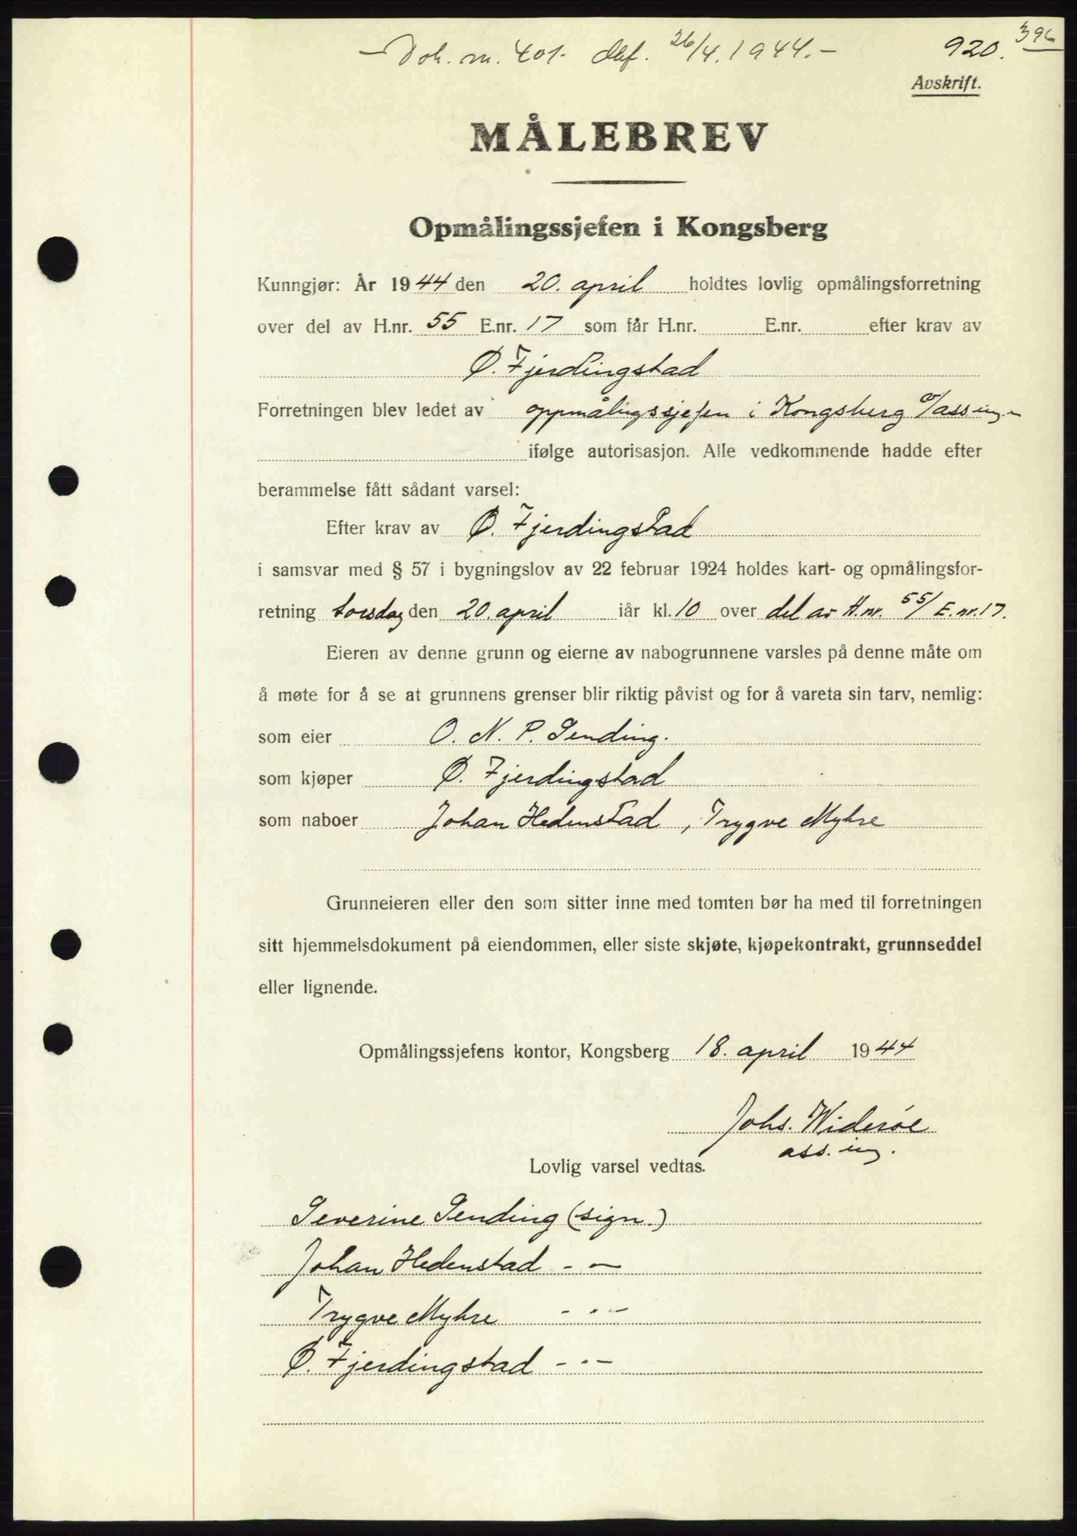 - Dok. nr. 401. def. 26/4. 1944. -
920. 396
Avskrift.
MÅLEBREV
Opmålingssjefen i Kongsberg
Kunngjør: År 1944 den 20. april holdtes lovlig opmålingsforretning
over del av H.nr. 55 E.nr. 17 som får H.nr. E.nr. efter krav av
Ø. Fjerdingstad
Forretningen blev ledet av oppmålingssjefen i Kongsberg v/ass ing.
ifølge autorisasjon. Alle vedkommende hadde efter
berammelse fått sådant varsel:
Efter krav av Ø. Fjerdingstad
i samsvar med § 57 i bygningslov av 22 februar 1924 holdes kart- og opmålingsfor-
retning torsdag den 20. april iår kl. 10 over del av H.nr. 55/E.nr. 17.
Eieren av denne grunn og eierne av nabogrunnene varsles på denne måte om
å møte for å se at grunnens grenser blir riktig påvist og for å vareta sin tarv, nemlig:
som eier O. N. P. Sending.
som kjøper Ø. Fjerdingstad
som naboer Johan Hedenstad, Trygve Myhre
Grunneieren eller den som sitter inne med tomten bør ha med til forretningen
sitt hjemmelsdokument på eiendommen, eller siste skjøte, kjøpekontrakt, grunnseddel
eller lignende.
Opmålingssjefens kontor, Kongsberg 18. april 1944
Johs. Widerøe
ass. ing.
Lovlig varsel vedtas.
Severine Sending (sign.)
Johan Hedenstad - " -
Trygve Myhre - " -
Ø. Fjerdingstad - " -